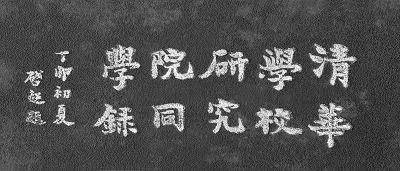 清華
學校
研究
院同
學錄
丁卯初夏
啓超題